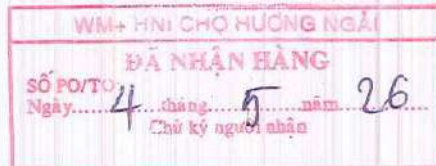 WM+ HNI CHỢ HƯƠNG NGẢI
ĐÃ NHẬN HÀNG
SỐ PO/TO:
Ngày......4...tháng....5......năm...26
Chữ ký người nhận